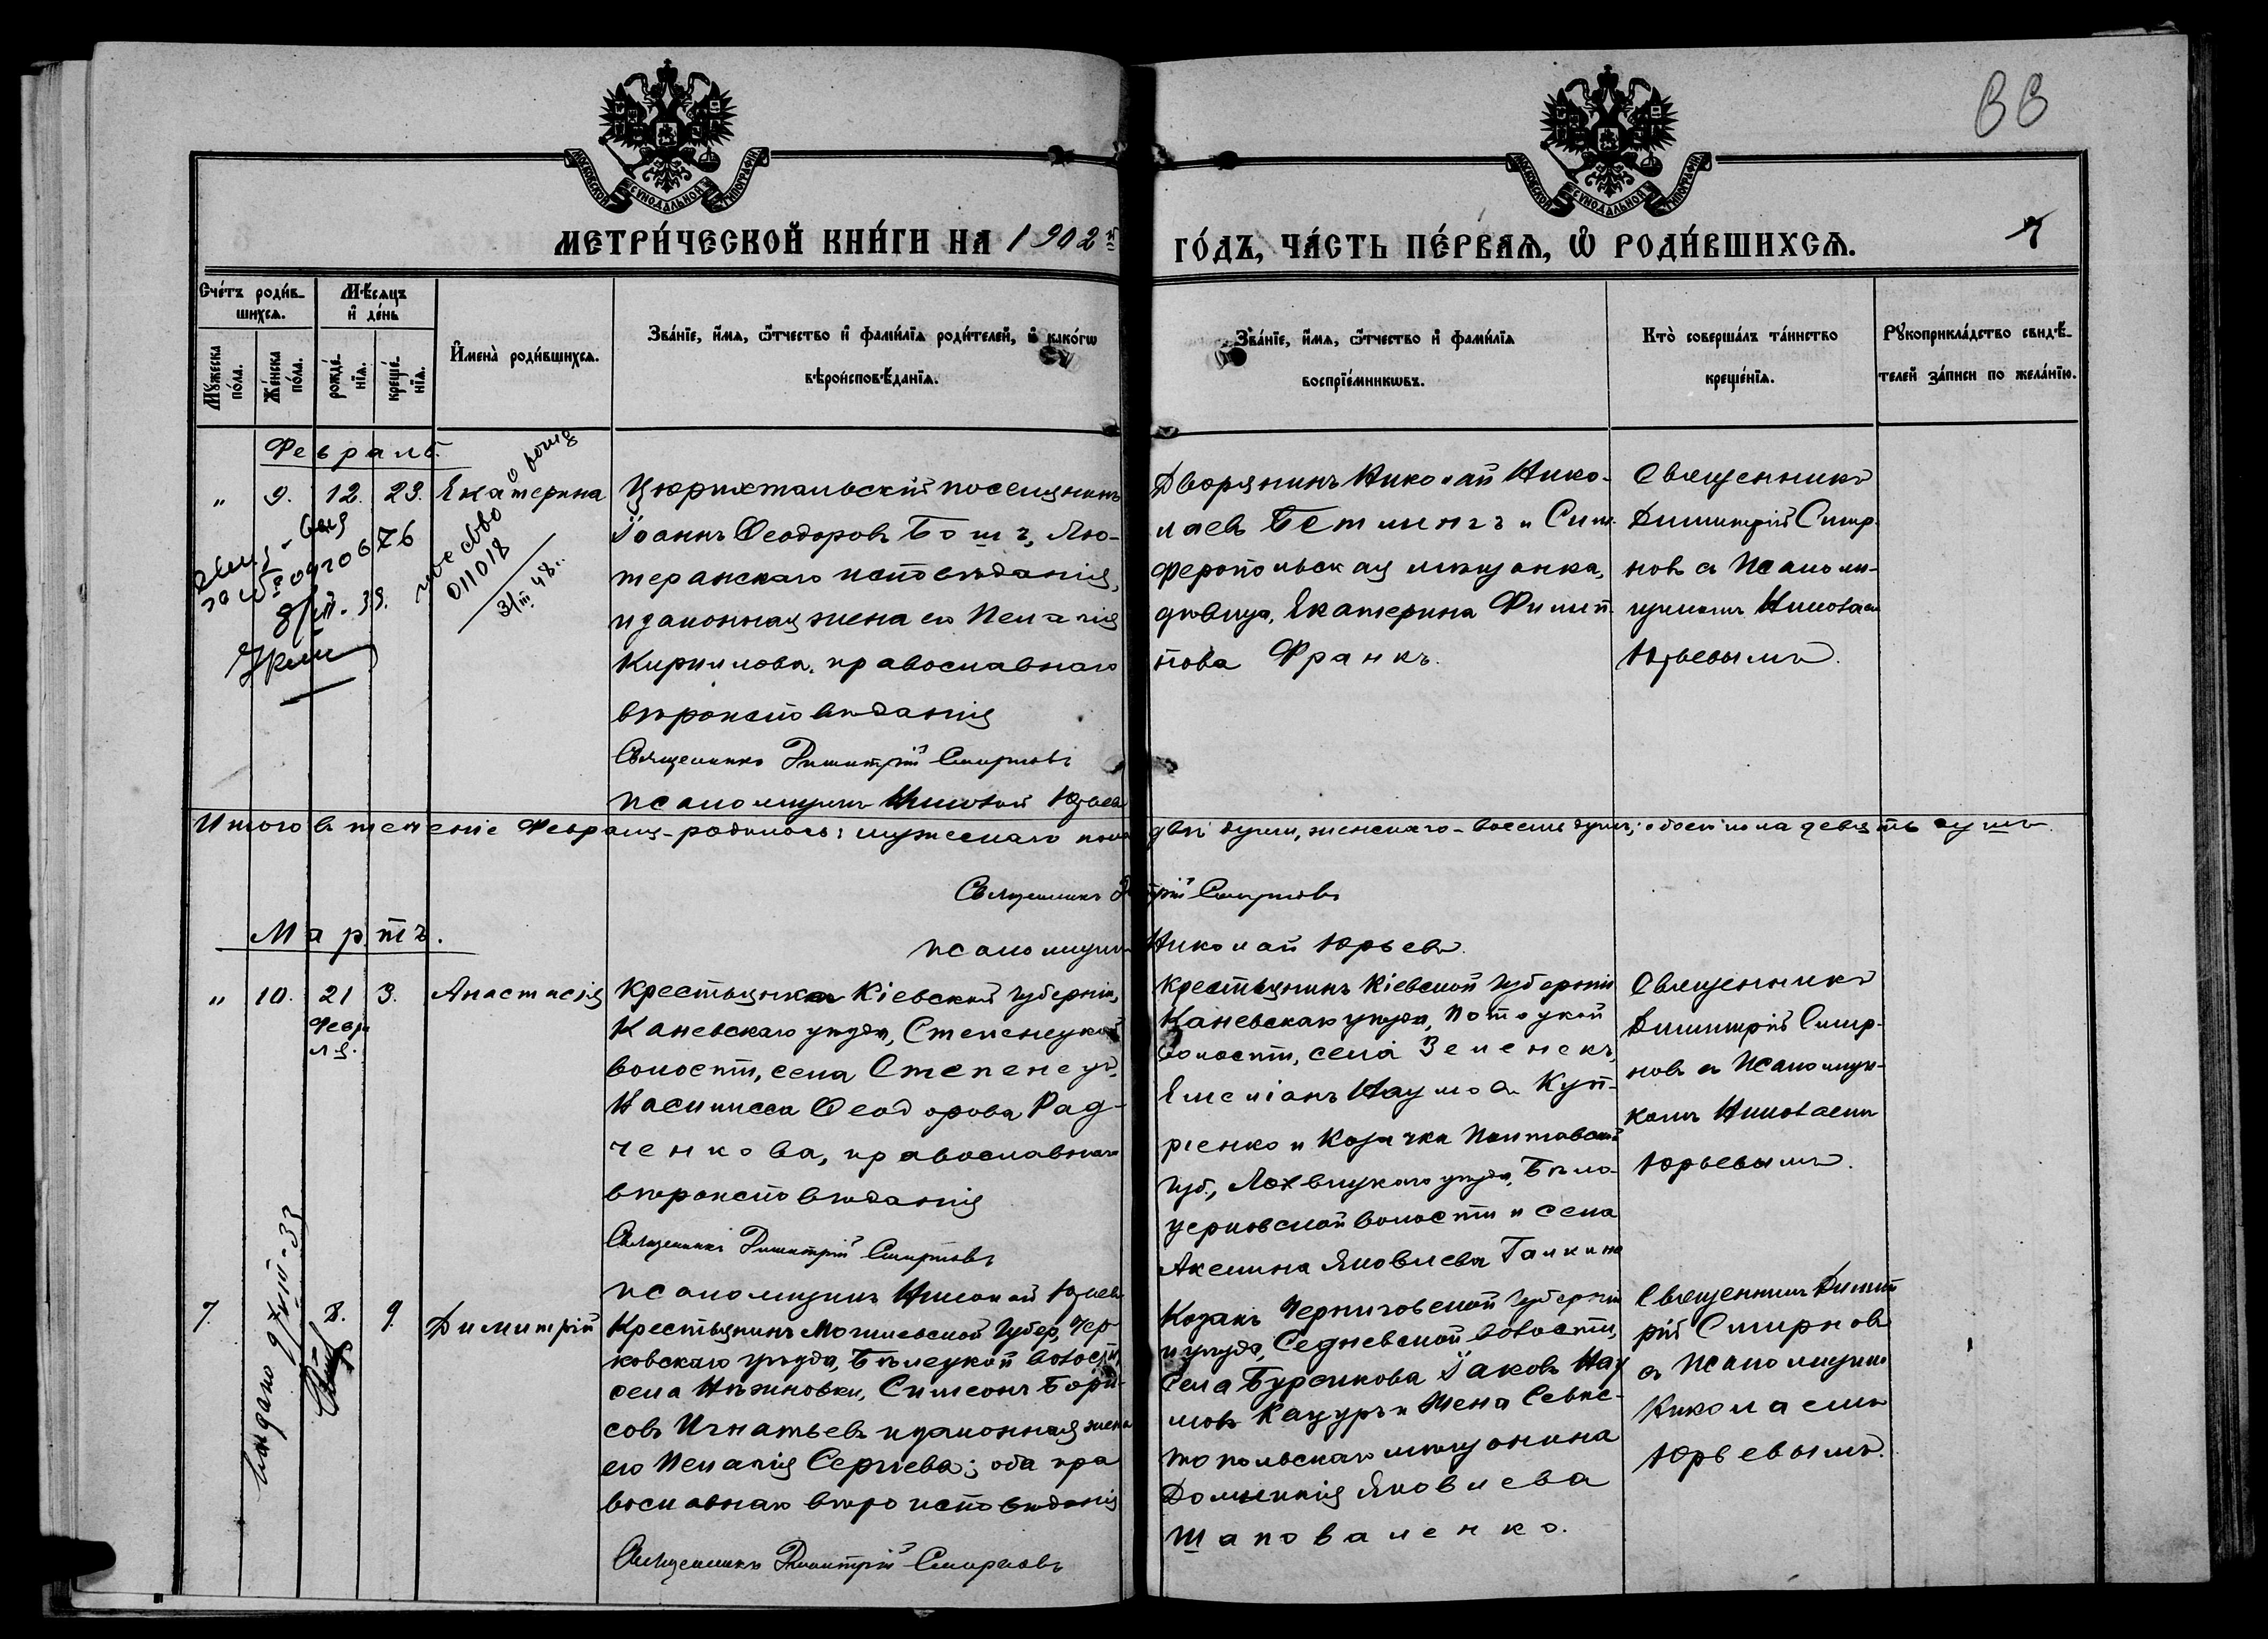 88
МОСКОВСКОЙ СУНОДАЛЬНОЙ ТИПОГРАФІИ
МОСКОВСКОЙ СУНОДАЛЬНОЙ ТИПОГРАФІИ
МЕТРИ́ЧЕСКОЙ КНИ́ГИ НА 1902й
ГО́ДЪ, ЧА́СТЬ ПЕ́РВАѦ, Ѡ҆ РОДИ́ВШИХСѦ.
7
Сче́тъ роди́в-
шихсѧ.
Мꙋ́жеска по́ла.
Же́нска по́ла.
Мѣ́сяцъ
и҆ де́нь
рожде́-
нїѧ.
креще́-
нїѧ.
И҆мена̀ роди́вшихсѧ.
Зва́нїе, и҆́мѧ, ѻ҆́тчество и҆ фами́лїѧ роди́телей, и҆ како́гѡ
вѣроисповѣ́данїѧ.
Зва́нїе, и҆́мѧ, ѻ҆́тчество и҆ фами́лїѧ
воспрїе́мникѡвъ.
Кто̀ соверша́лъ та́инство
креще́нїѧ.
Рꙋкоприкла́дство свидѣ́-
телей за́писи по жела́нїю.
Февраль.
" 9. 12. 23. Екатерина
Цюрихтальскій поселянинъ
Іоаннъ Ѳеодоровъ Бошъ, Лю-
теранскаго исповѣданія,
и законная жена его Пелагія
Кириллова, православнаго
вѣроисповѣданія
Священникъ Димитрій Смирновъ
псаломщикъ Николай Юрьевъ
Дворянинъ Никол ай Нико-
лаевъ Бетлингъ и Сим-
феропольская мѣщанка,
дѣвица, Екатерина Филип-
пова Франкъ.
Священникъ
Димитрій Смир-
новъ съ Псалом-
щикомъ Николаем
Юрьевымъ.
за № 0420676
8/III-39.
011018
31/III 48.
Итого въ теченіе Февраля-родилось: мужескаго пола двѣ души, женскаго-восемь душъ; обоего пола девять душъ.
Священникъ Димитрій Смирновъ
псаломщикъ Николай Юрьевъ.
Мартъ.
" 10. 21 3. Анастасія
Февра
ля.
Крестьянка Кіевской губерніи,
Каневскаго уѣзда, Степенецкой
волости, села Степенецъ,
Василисса Ѳеодорова Рад-
ченкова, православнаго
вѣроисповѣданія
Священникъ Димитрій Смирновъ
псаломщикъ Николай Юрьевъ
Крестьянинъ Кіевской губерніи
Каневскаго уѣзда, Потоцкой
волости, села Зеленекъ,
Емеліанъ Наумовъ Куп-
ріенко и Козачка Полтавской
губ., Лохвицкаго уѣзда, Бѣло-
церковской волости и села
Акелина Яковлева Галкина
Священникъ
Димитрій Смир-
новъ съ Псаломщи-
комъ Николаемъ
Юрьевымъ.
7. 8. 9. Димитрій
Крестьянинъ Могилевской Губер, Чер-
ковскаго уѣзда, Бѣлецкой волости,
села Нѣжиновки, Симеонъ Бори-
совъ Игнатьевъ и законная жена
его Пелагія Сергіева; оба пра
вославнаго вѣроисповѣданія
Священникъ Димитрій Смирновъ
Козакъ Черниговской Губерніи
и уѣзда, Седневской волости,
села Бурсикова Іаковъ Нау
мовъ Кацуръ и жена Севас-
топольскаго мѣщанина
Домникія Яковлева
Шаповаленко.
Священникъ Димит
рій Смирновъ
съ Псаломщикомъ
Николаемъ
Юрьевымъ.